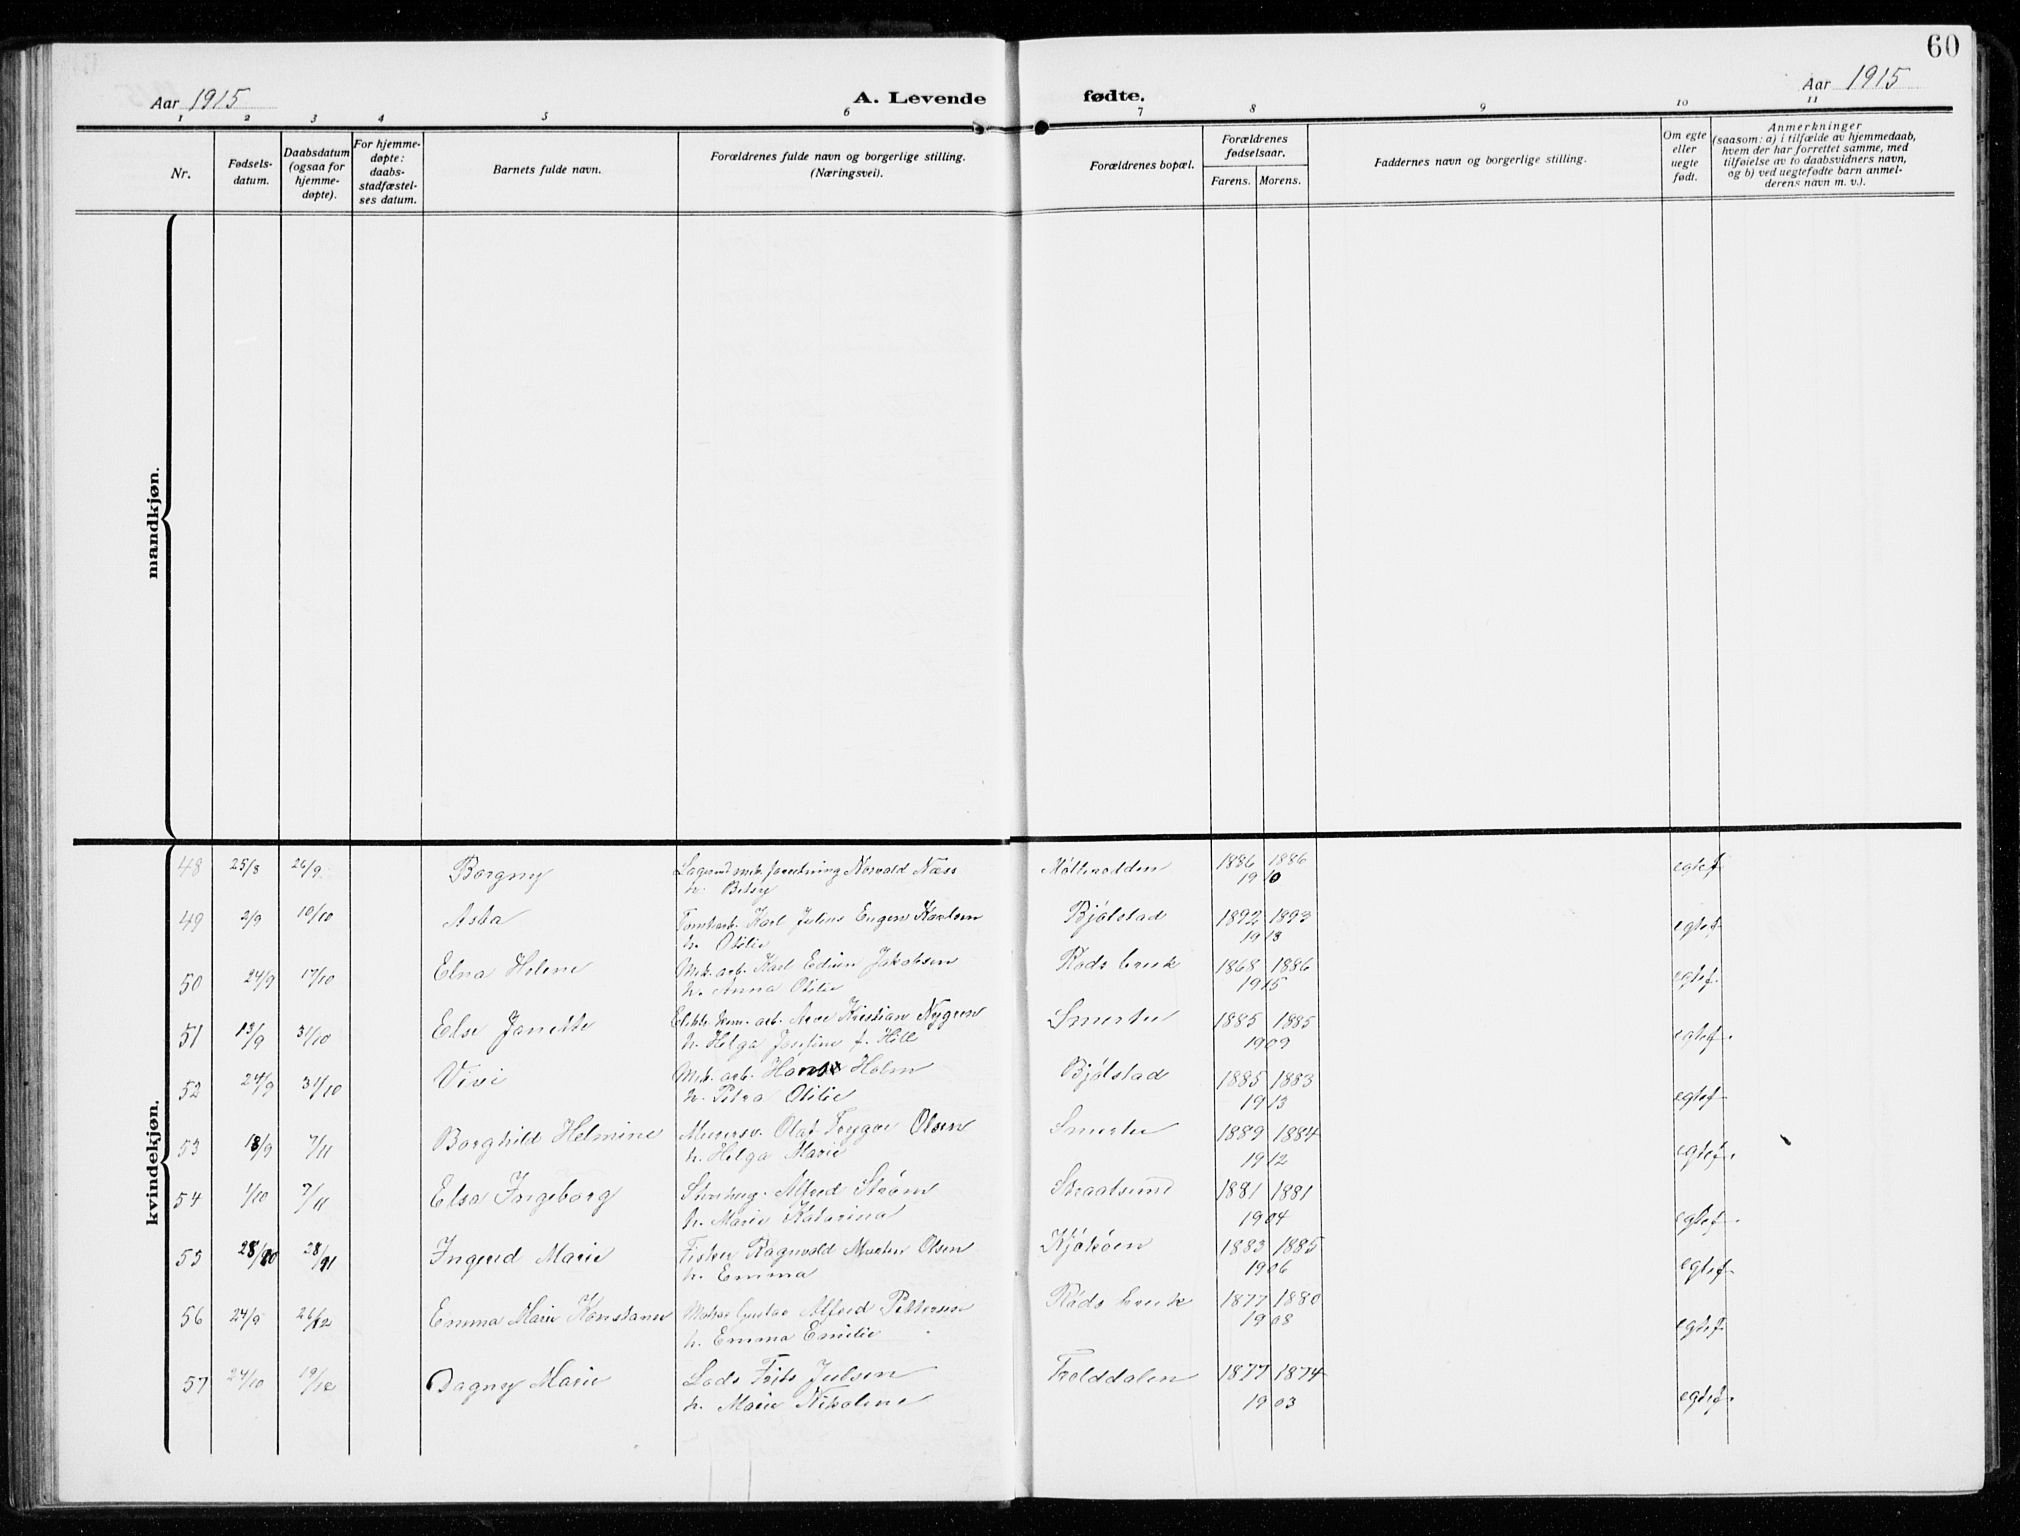 60
Aar 1915
A. Levende
fødte.
Aar 1915
1 2 3 4 5 6 7 8 9 10 11
Nr.
Fødsels-
datum.
Daabsdatum
(ogsaa for
hjemme-
døpte).
For hjemme-
døpte:
daabs-
stadfæstel-
ses datum.
Barnets fulde navn.
Forældrenes fulde navn og borgerlige stilling.
(Næringsvei).
Forældrenes bopæl.
Forældrenes
fødselsaar.
Farens. Morens.
Faddernes navn og borgerlige stilling.
Om egte
eller
uegte
født.
Anmerkninger
(saasom: a) i tilfælde av hjemmedaab,
hvem der har forrettet samme, med
tilføielse av to daabsvidners navn,
og b) ved uegtefødte barn anmel-
derens navn m. v.).
mandkjøn.
kvindekjøn.
48 25/8 26/9 Borgny Norvald Næss 1886 1886 egtef
h. Betsy 1910
49 2/9 10/10 Asta Karl Julius Eugen Karlsen Bjølstad 1892 1893 egtef
h. Otilie 1913
50 24/9 17/10 Elna Helene Mek. arb. Karl Edvin Jakobsen Røds bruk 1868 1886 egtef.
h. Anna Otilie 1915
51 13/9 31/10 Else Janette arb. Kristian Nygren Smertu 1885 1885 egtef.
h. Helga Josefine f. Hill 1909
52 24/9 31/10 Vivi Mek. arb. Hans Holm Bjølstad 1885 1883 egtef
h. Petra Otilie 1913
53 18/9 7/11 Borghild Helmine Murersv. Olaf Trygve Olsen Smertu 1889 1884 egtef.
h. Helga Marie 1912
54 1/10 7/11 Elsa Ingeborg Stenhug. Alfred Strøm Straalsund 1881 1881 egtef.
h. Marie Katarina 1904
55 28/10 28/11 Ingerid Marie Fisker Ragnvald Martin Olsen Kjøkøen 1883 1885 egtef.
h. Emma 1906
56 24/9 26/12 Emma Marie Konstanse Gustav Alfred Pettersen Røds bruk 1877 1880 egtef.
h. Emma Emilie 1908
57 24/10 19/12 Dagny Marie Lods Frits Julsen Trolddalen 1877 1874 egtef.
h. Marie Nikoline 1903